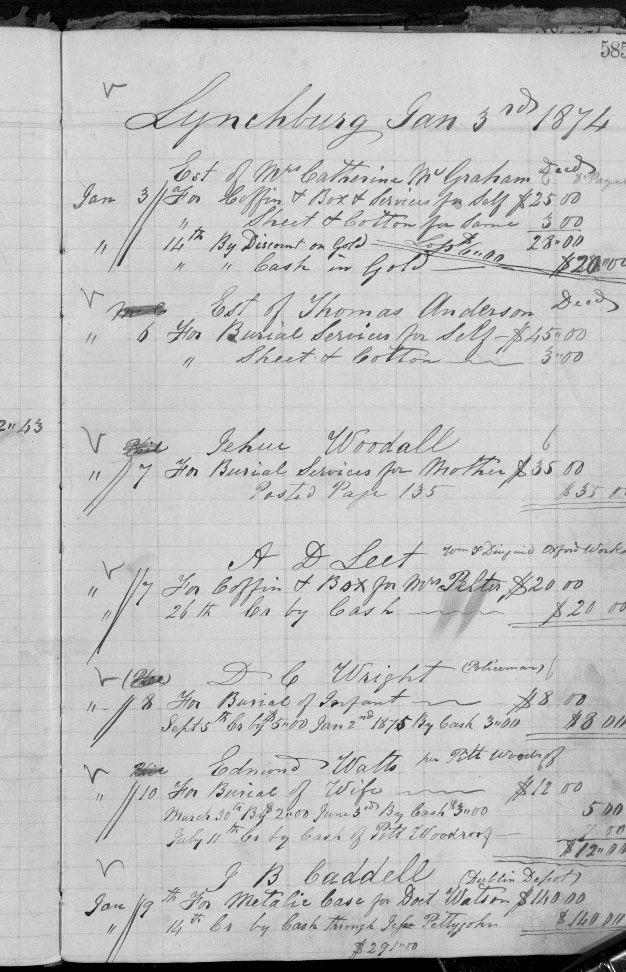 585
Lynchburg Jan 3rd 1874
Est of Mrs Catherine Mc Graham Decd
Jan 3 For Coffin & Box & Services for Self $25 00
" Sheet & Cotton for Same 3 00
" 14th By Discount on Gold 28"00
" " Cash in Gold $20"00
Est of Thomas Anderson Decd
" 6 For Burial Services for Self $45"00
" Sheet & Cotton 3"00
2"43
Jehue Woodall
" 7 For Burial Services for Mother $35 00
Posted Page 135 $35 00
A D Leet Wm Oxford Works
" 7 For Coffin & Box for Mrs Pelter $20 00
" 26th Cr by Cash $20 00
D C Wright (Policeman)
" 8 For Burial of Infant $8 00
Sept 5th Cr by $5"00 Jan 2nd 1875 By Cash 3"00 $8 00
Edmond Watts per Pitt Woodrof
" 10 For Burial of Wife $12 00
March 30th By $2"00 June 3rd By Cash $3"00 5 00
July 11th Cr by Cash of Pitt Woodroof 7 00
$12"00
J B Caddell (Dublin Depot)
Jan 9th For Metalic Case for Doct Watson $140 00
" 14th Cr by Cash through Pettyjohn $140 00
$291"00